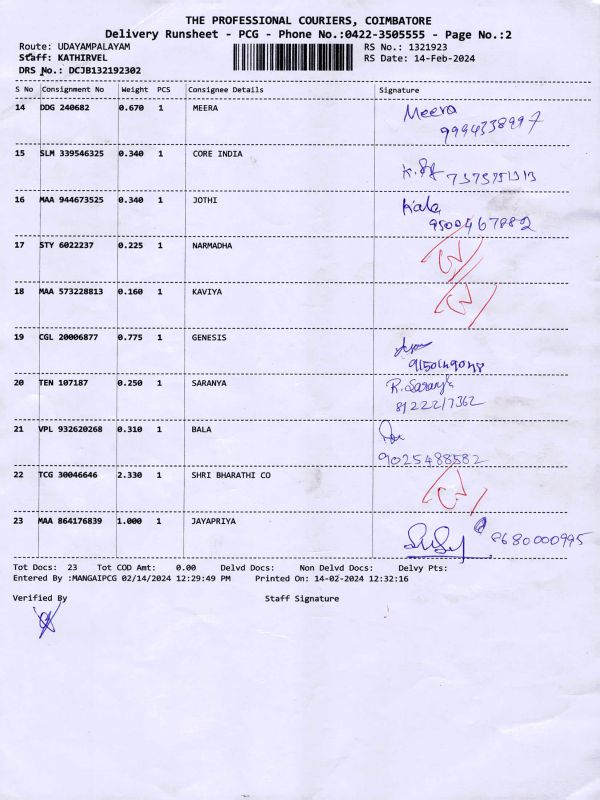 THE PROFESSIONAL COURIERS, COIMBATORE
Delivery Runsheet - PCG - Phone No.:0422-3505555 - Page No.:2
Route: UDAYAMPALAYAM RS No.: 1321923
Staff: KATHIRVEL RS Date: 14-Feb-2024
DRS No.: DCJB132192302
S No Consignment No Weight PCS Consignee Details Signature
14 DDG 240682 0.670 1 MEERA Meera
9994338997
15 SLM 339546325 0.340 1 CORE INDIA
7373751313
16 MAA 944673525 0.340 1 JOTHI Kala
9500467882
17 STY 6022237 0.225 1 NARMADHA
18 MAA 573228813 0.160 1 KAVIYA
19 CGL 20006877 0.775 1 GENESIS
9150149048
20 TEN 107187 0.250 1 SARANYA R. Saranya
8122217362
21 VPL 932620268 0.310 1 BALA
9025488582
22 TCG 30046646 2.330 1 SHRI BHARATHI CO
23 MAA 864176839 1.000 1 JAYAPRIYA 8680000995
Tot Docs: 23 Tot COD Amt: 0.00 Delvd Docs: Non Delvd Docs: Delvy Pts:
Entered By :MANGAIPCG 02/14/2024 12:29:49 PM Printed On: 14-02-2024 12:32:16
Verified By Staff Signature